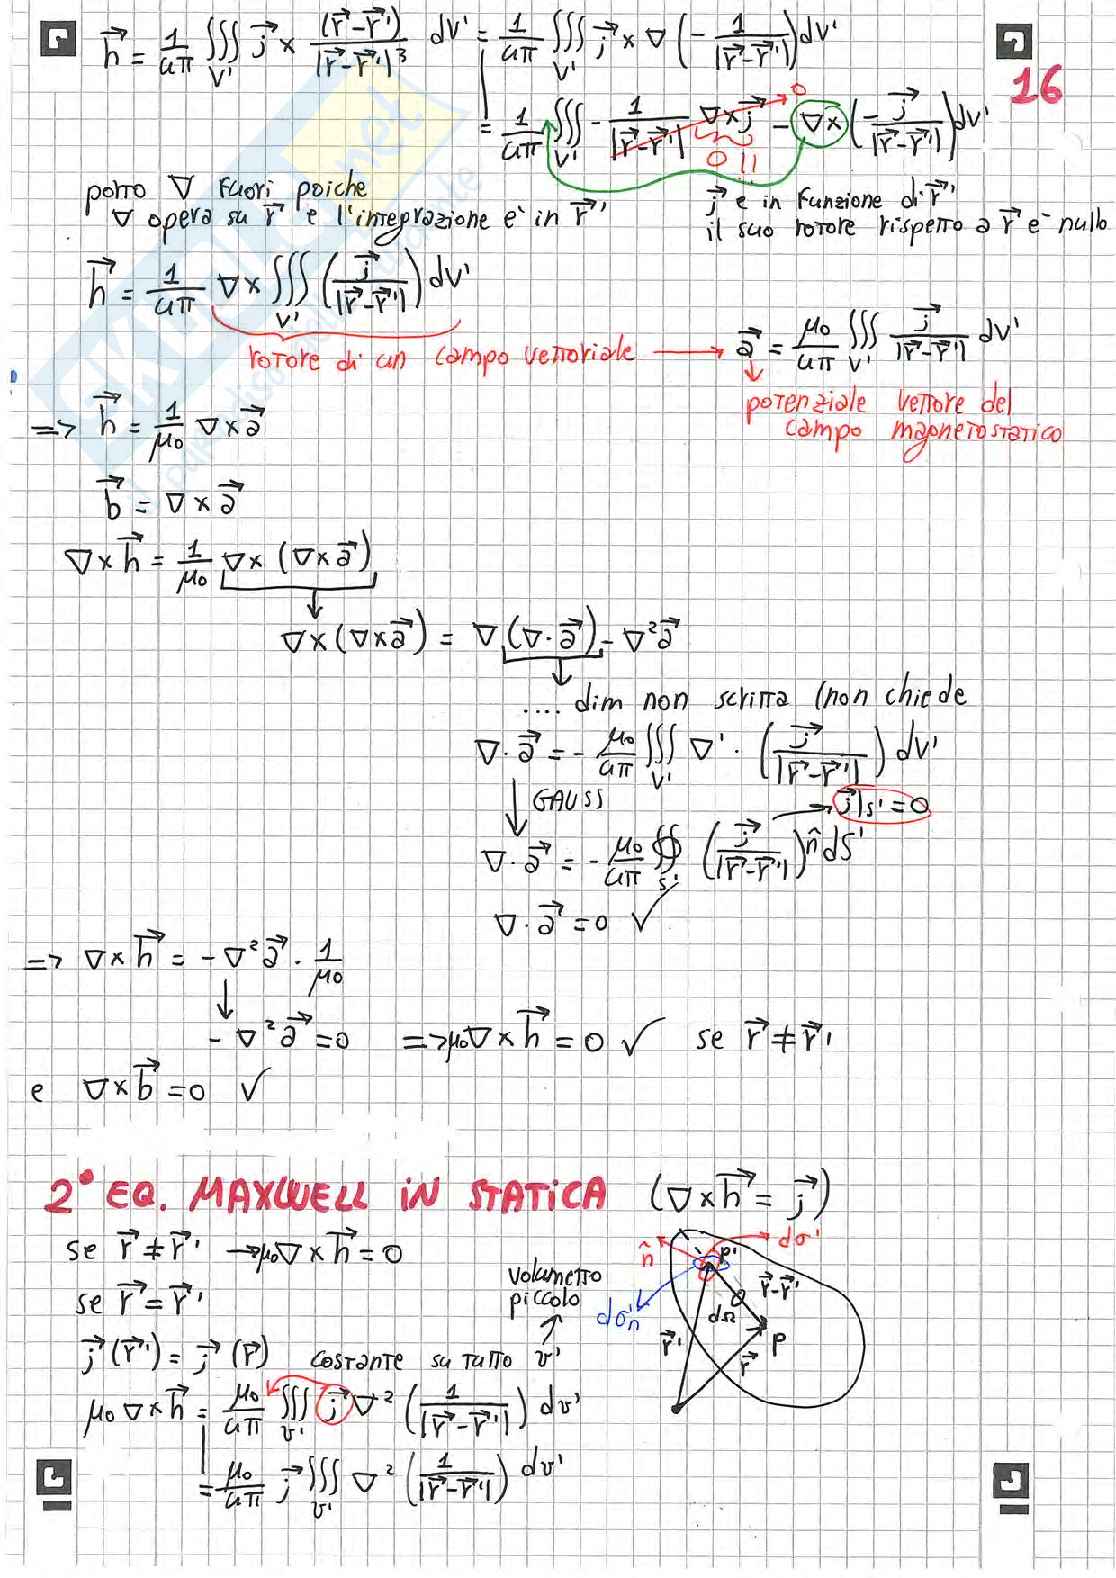 h⃗ = 1/4π ∭_V' j⃗ × (r⃗-r⃗')/|r⃗-r⃗'|³ dv' = 1/4π ∭_V' j⃗ × ∇ (- 1/|r⃗-r⃗'|) dv'
16
= 1/4π ∭_V' - 1/|r⃗-r⃗'| ∇×j⃗ → 0 - ∇× (-j⃗/|r⃗-r⃗'|) dv'
0 !!
porto ∇ fuori poiche
∇ opera su r⃗ e l'integrazione e' in r⃗'
j⃗ e in funzione di r⃗'
il suo rotore rispetto a r⃗ e' nullo
h⃗ = 1/4π ∇× ∭_V' (j⃗/|r⃗-r⃗'|) dv'
rotore di un campo vettoriale → a⃗ = μ₀/4π ∭_V' j⃗/|r⃗-r⃗'| dv'
potenziale vettore del
campo magnetostatico
=> h⃗ = 1/μ₀ ∇×a⃗
b⃗ = ∇×a⃗
∇×h⃗ = 1/μ₀ ∇×(∇×a⃗)
∇×(∇×a⃗) = ∇(∇·a⃗) - ∇²a⃗
.... dim non scritta (non chiede
∇·a⃗ = - μ₀/4π ∭_V' ∇'· (j⃗/|r⃗-r⃗'|) dv'
GAUSS
j⃗|s' = 0
∇·a⃗ = - μ₀/4π ∯_S' (j⃗/|r⃗-r⃗'|) n̂ dS'
∇·a⃗ = 0 ✓
=> ∇×h⃗ = -∇²a⃗ · 1/μ₀
-∇²a⃗ = 0 => μ₀∇×h⃗ = 0 ✓ se r⃗ ≠ r⃗'
e ∇×b⃗ = 0 ✓
2° EQ. MAXWELL IN STATICA (∇×h⃗ = j⃗)
se r⃗ ≠ r⃗' → μ₀∇×h⃗ = 0
se r⃗ = r⃗'
volumetto
piccolo
j⃗(r⃗') = j⃗(r⃗) costante su tutto v'
n̂ P' dσ'
r⃗-r⃗'
dσ'n dΩ
r⃗' r⃗ P
μ₀∇×h⃗ = μ₀/4π ∭_v' j⃗ ∇² (1/|r⃗-r⃗'|) dv'
= μ₀/4π j⃗ ∭_v' ∇² (1/|r⃗-r⃗'|) dv'